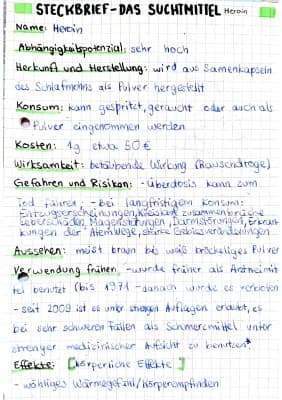 STECKBRIEF-DAS SUCHTMITTEL Heroin
Name: Heroin
Abhängigkeitspotenzial: sehr hoch
Herkunft und Herstellung: wird aus Samenkapseln
des Schlafmohns als Pulver hergestellt
Konsum: kann gespritzt, geraucht oder auch als
Pulver eingenommen werden
Kosten: 1g etwa 50€
Wirksamkeit: betäubende Wirkung (Rauschdroge)
Gefahren und Risiken: -Überdosis kann zum
Tod führen; - bei langfristigem konsum:
Entzugserscheinungen, Kreislaufzusammenbrüche
Leberschäden, Magenstörungen, Darmstörungen, Erkran-
kungen der Atemwege, starke Gebissveränderungen
Aussehen: meist braun bis weiß bröckeliges Pulver
Verwendung früher: -wurde früher als Arzneimit
tel benutzt (bis 1971 - danach wurde es verboten
- seit 2009 ist es unter strengen Auflagen erlaubt, es
bei sehr schweren Fällen als Schmerzmittel unter
strenger medizinischer Aufsicht zu benutzen
Effekte: [körperliche Effekte]
- wohliges Wärmegefühl/Körperempfinden